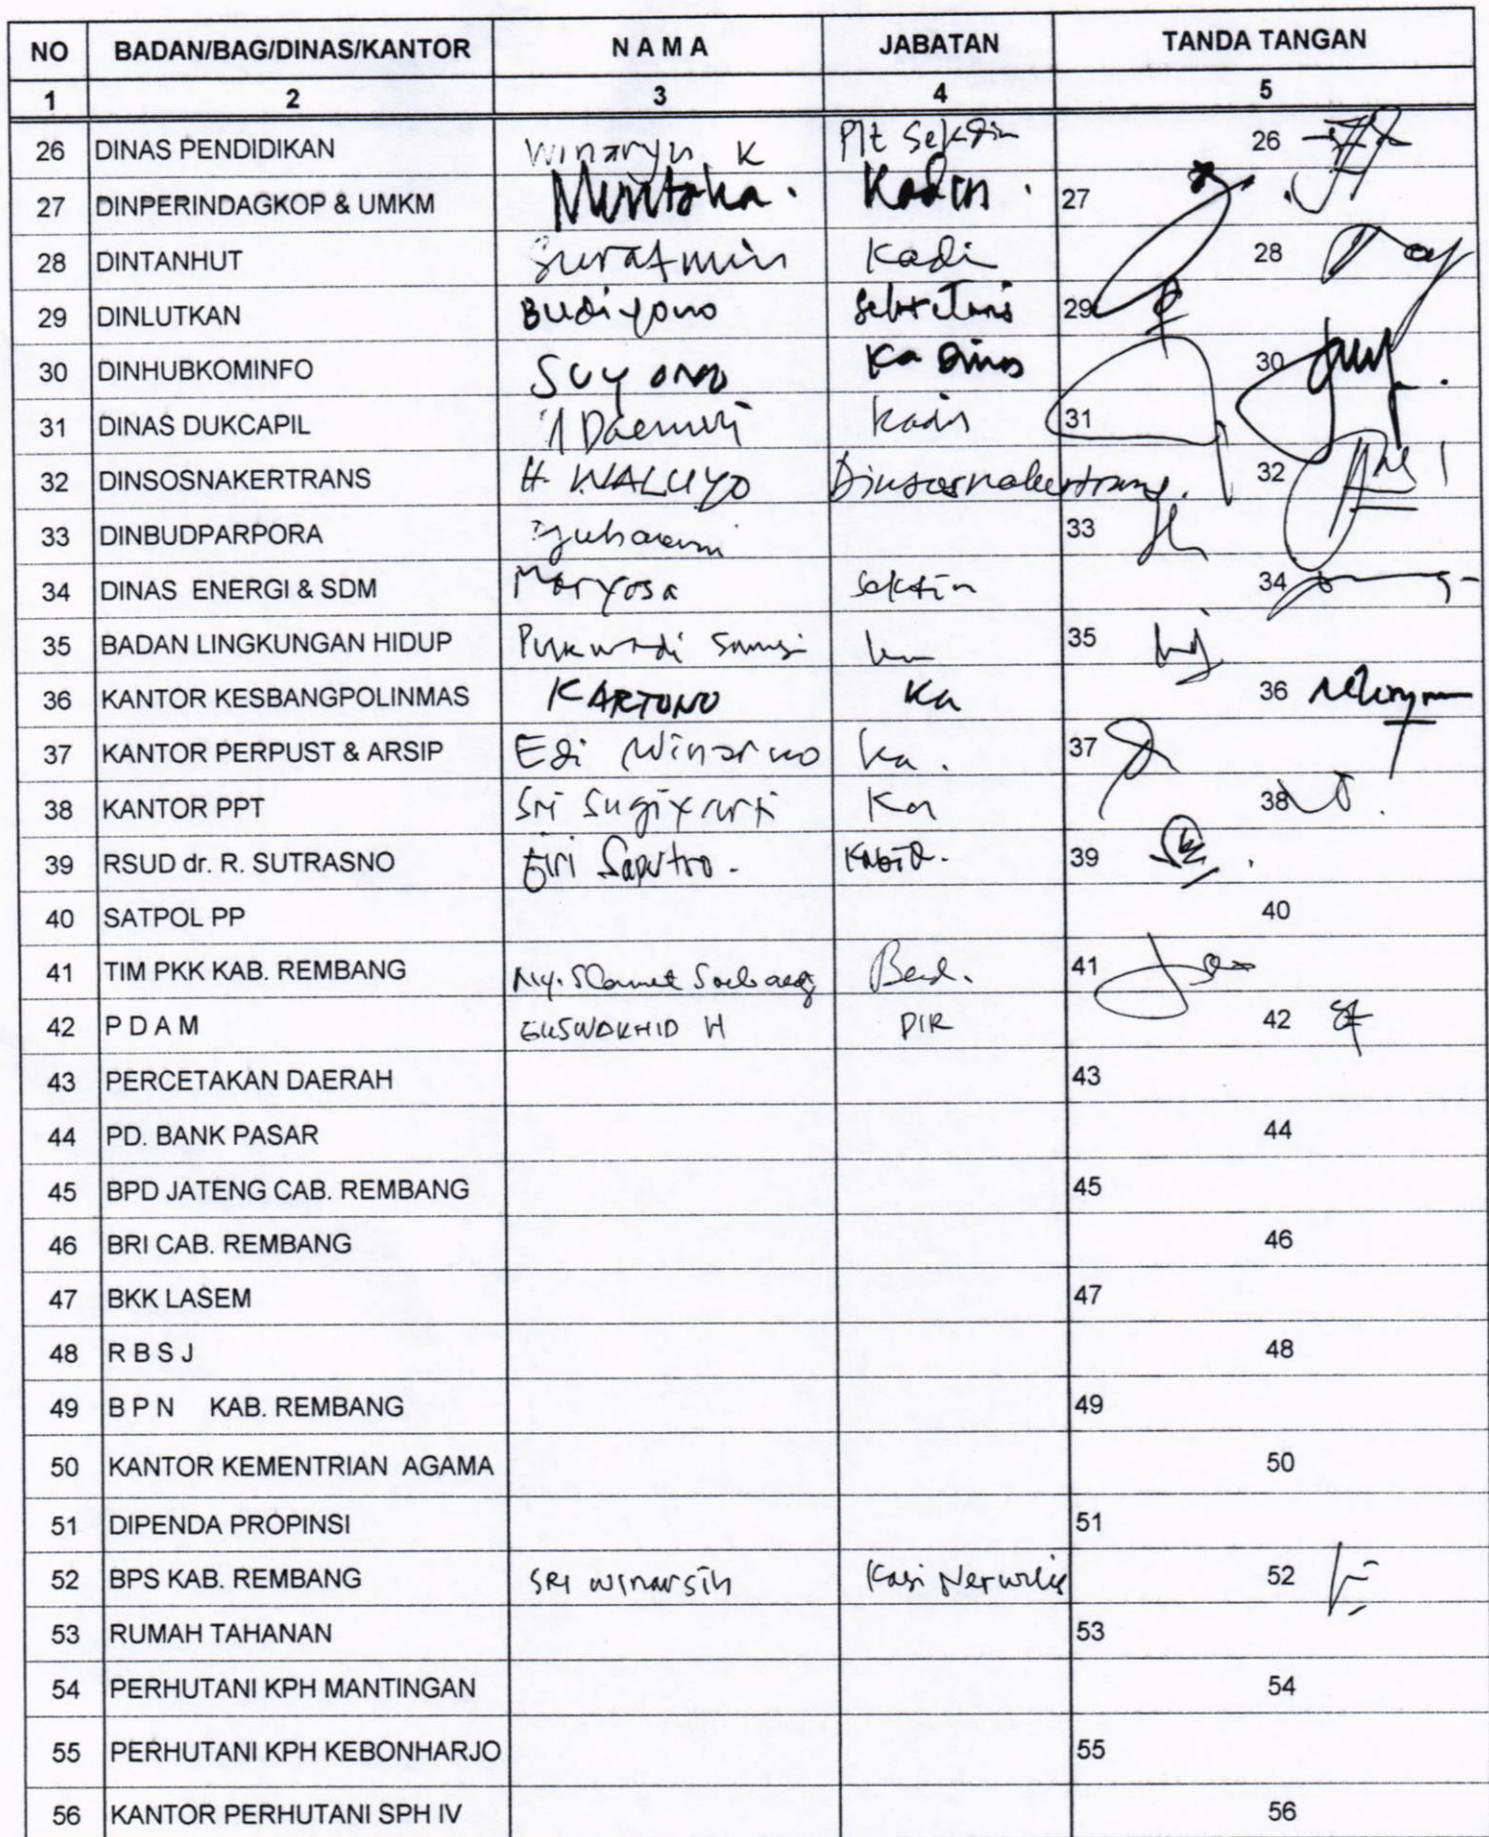 NO BADAN/BAG/DINAS/KANTOR N A M A JABATAN TANDA TANGAN
1 2 3 4 5
26 DINAS PENDIDIKAN Winaryu K Plt Sekdin 26
27 DINPERINDAGKOP & UMKM Muntoha. Kadin. 27
28 DINTANHUT Suratmin Kadi 28
29 DINLUTKAN Budiyono Sekretaris 29
30 DINHUBKOMINFO Suyono Ka Dinas 30
31 DINAS DUKCAPIL Daenuri Kadin 31
32 DINSOSNAKERTRANS H. WALUYO Dinsosnakertrans. 32
33 DINBUDPARPORA 33
34 DINAS ENERGI & SDM Maryosa Sekdin 34
35 BADAN LINGKUNGAN HIDUP 35
36 KANTOR KESBANGPOLINMAS KARTONO Ka 36
37 KANTOR PERPUST & ARSIP Edi Winarno Ka. 37
38 KANTOR PPT Sri Sugiyarti Ka 38
39 RSUD dr. R. SUTRASNO Giri Saputro. KABID. 39
40 SATPOL PP 40
41 TIM PKK KAB. REMBANG Ny. Slamet Bend. 41
42 P D A M H DIR 42
43 PERCETAKAN DAERAH 43
44 PD. BANK PASAR 44
45 BPD JATENG CAB. REMBANG 45
46 BRI CAB. REMBANG 46
47 BKK LASEM 47
48 R B S J 48
49 B P N KAB. REMBANG 49
50 KANTOR KEMENTRIAN AGAMA 50
51 DIPENDA PROPINSI 51
52 BPS KAB. REMBANG SRI Winarsih Kasi Nerwilis 52
53 RUMAH TAHANAN 53
54 PERHUTANI KPH MANTINGAN 54
55 PERHUTANI KPH KEBONHARJO 55
56 KANTOR PERHUTANI SPH IV 56